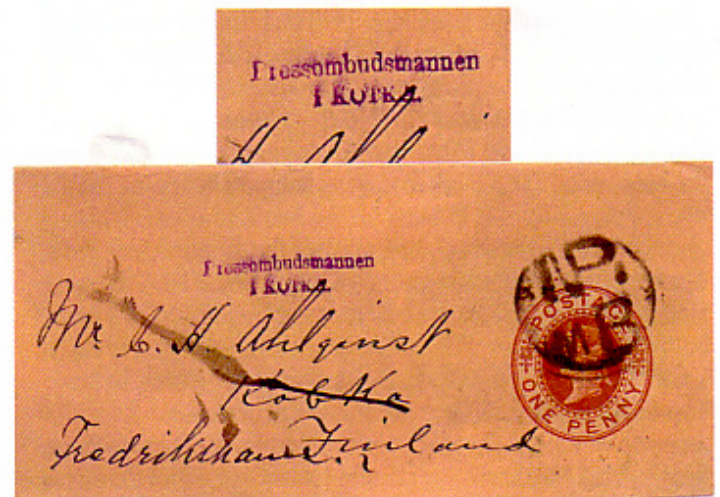 Pressombudsmannen
I KOTKA.
H. Ahl
Pressombudsmannen
I KOTKA.
Mr. C. H. Ahlqvist
Kotka
Fredrikshamn Finland
POSTAGE
ONE PENNY